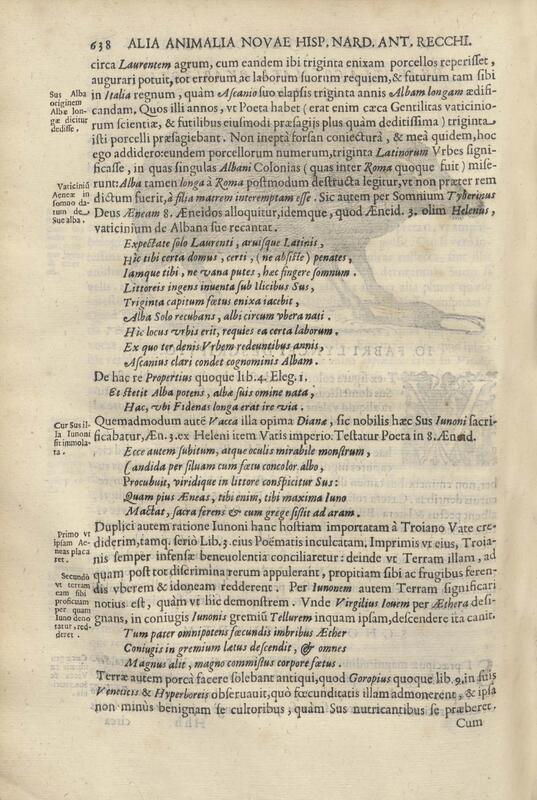 638 ALIA ANIMALIA NOVAE HISP. NARD. ANT. RECCHI.
circa Laurentem agrum, cum eandem ibi triginta enixam porcellos reperisset,
augurari potuit, tot errorum, ac laborum suorum requiem, & futurum tam sibi
in Italia regnum, quàm Ascanio suo elapsis triginta annis Albam longam ædifi-
candam. Quos illi annos, vt Poeta habet (erat enim cæca Gentilitas vaticinio-
rum scientiæ, & futilibus eiusmodi præsagijs plus quàm deditissima) triginta
isti porcelli præsagiebant. Non ineptà forsan coniecturà, & meà quidem, hoc
ego addidero: eundem porcellorum numerum, triginta Latinorum Vrbes signi-
ficasse, in quas singulas Albani Colonias (quas inter Roma quoque fuit) mise-
runt: Alba tamen longa à Roma postmodum destructa legitur, vt non præter rem
dictum fuerit, à filia matrem interemptam esse. Sic autem per Somnium Tyberinus
Deus Æneam 8. Æneidos alloquitur, idemque, quod Æneid. 3. olim Helenus,
vaticinium de Albana sue recantat.
Sus Alba
originem
Albæ lon-
gæ dicitur
dedisse.
Vaticiniũ
Aeneæ in
somno da-
tum de
Sue alba.
Expectate solo Laurenti, aruisque Latinis,
Hic tibi certa domus, certi, (ne absiste) penates,
Iamque tibi, ne vana putes, hæc fingere somnum.
Littoreis ingens inuenta sub Ilicibus Sus,
Triginta capitum fœtus enixa iacebit,
Alba Solo recubans, albi circum vbera nati.
Hic locus vrbis erit, requies ea certa laborum.
Ex quo ter denis Vrbem redeuntibus annis,
Ascanius clari condet cognominis Albam.
De hac re Propertius quoque lib. 4. Eleg. 1.
Et stetit Alba potens, albæ suis omine nata,
Hac, vbi Fidenas longa erat ire via.
Quemadmodum autẽ Vacca illa opima Dianæ, sic nobilis hæc Sus Iunoni sacri-
ficabatur, Æn. 3. ex Heleni item Vatis imperio. Testatur Poeta in 8. Æneid.
Cur Sus il-
la Iunoni
sit immola-
ta.
Ecce autem subitum, atque oculis mirabile monstrum,
Candida per siluam cum fœtu concolor albo,
Procubuit, viridique in littore conspicitur Sus:
Quam pius Æneas, tibi enim, tibi maxima Iuno
Mactat, sacra ferens & cum grege sistit ad aram.
Duplici autem ratione Iunoni hanc hostiam importatam à Troiano Vate cre-
diderim, tamq. seriò Lib. 3. eius Poëmatis inculcatam, Imprimis vt eius, Troia-
nis semper infensæ beneuolentia conciliaretur: deinde vt Terram illam, ad
quam post tot discrimina rerum appulerant, propitiam sibi ac frugibus feren-
dis vberem & idoneam redderent. Per Iunonem autem Terram significari
notius est, quàm vt hic demonstrem. Vnde Virgilius Iouem per Æthera desi-
gnans, in coniugis Iunonis gremiũ Tellurem inquam ipsam, descendere ita canit.
Primo vt
ipsam Ae-
neas placa
ret.
Secundò
vt terram
eam sibi
proficuam
per quam
Iuno deno
tatur, red-
deret.
Tum pater omnipotens fœcundis imbribus Æther
Coniugis in gremium lætus descendit, & omnes
Magnus alit, magno commistus corpore fœtus.
Terræ autem porcà facere solebant antiqui, quod Goropius quoque lib. 9. in suis
Venetitis & Hyperboreis obseruauit, quò fœcunditatis illam admonerent, & ipsa
non minùs benignam se cultoribus, quàm Sus nutricantibus se præberet.
Cum